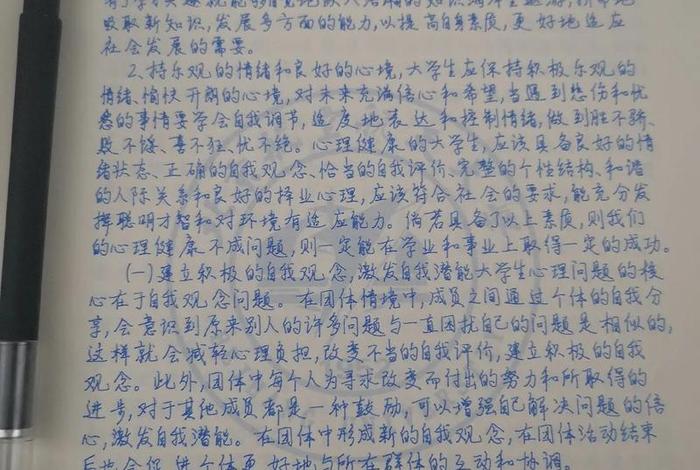 吸取新知识,发展多方面的能力,以提高自身素质,更好地适应
社会发展的需要。
2、持乐观的情绪和良好的心境,大学生应保持积极乐观的
情绪、愉快开朗的心境,对未来充满信心和希望,当遇到悲伤和忧
愁的事情要学会自我调节,适度地表达和控制情绪,做到胜不骄、
败不馁、喜不狂、忧不绝。心理健康的大学生,应该具备良好的情
绪状态、正确的自我观念、恰当的自我评价、完整的个性结构、和谐
的人际关系和良好的择业心理,应该符合社会的要求,能充分发
挥聪明才智和对环境有适应能力。倘若具备了以上素质,则我们
的心理健康不成问题,则一定能在学业和事业上取得一定的成功。
(一)建立积极的自我观念,激发自我潜能大学生心理问题的核
心在于自我观念问题。在团体情境中,成员之间通过个体的自我分
享,会意识到原来别人的许多问题与一直困扰自己的问题是相似的,
这样就会减轻心理负担,改变不当的自我评价,建立积极的自我
观念。此外,团体中每个人为寻求改变而付出的努力和所取得的
进步,对于其他成员都是一种鼓励,可以增强自己解决问题的信
心,激发自我潜能。在团体中形成新的自我观念,在团体活动结束
后也会促进个体更好地与所在群体的互动和协调。